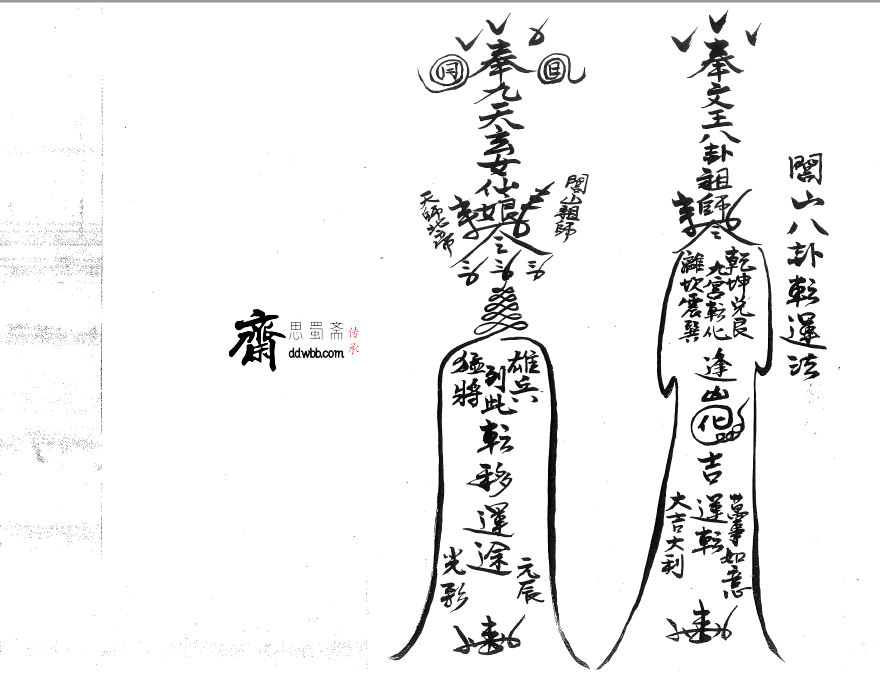 閭山八卦転運法
奉文王八卦祖師
乾坤兌艮
九宮転化
離坎震巽
逢凶化吉
運転
萬事如意
大吉大利
奉九天玄女仙娘
閭山祖師
天師北帝
雄兵
到此
猛將
転移運途
元辰
光彩
齋
思蜀斋
ddwbb.com
传承